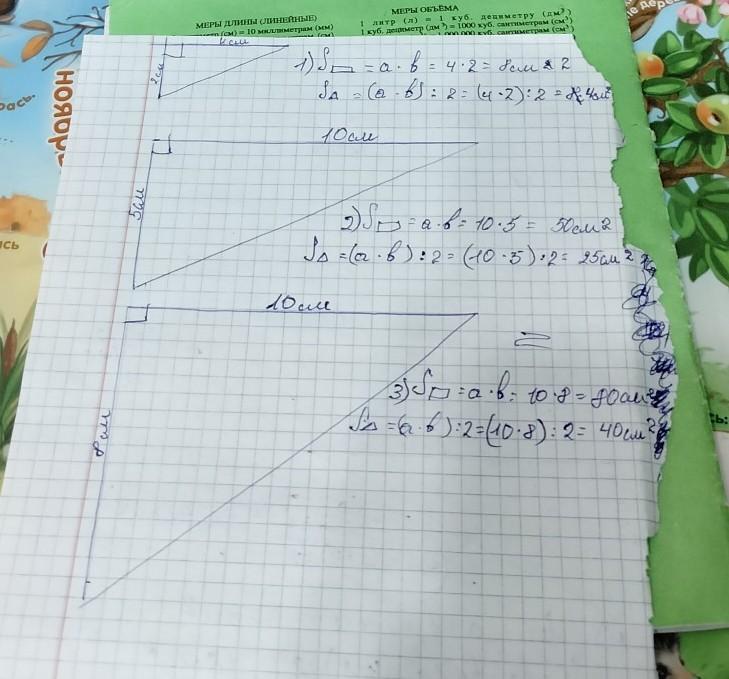 МЕРЫ ДЛИНЫ (ЛИНЕЙНЫЕ)
МЕРЫ ОБЪЁМА
1 литр (л) = 1 куб. дециметру (дм³)
(см) = 10 миллиметрам (мм)
1 куб. дециметр (дм³) = 1000 куб. сантиметрам (см³)
2см
1) S▭ = a · b = 4 · 2 = 8см 2
S△ = (a · b) : 2 = (4 · 2) : 2 = 4см²
10см
5см
2) S▭ = a · b = 10 · 5 = 50см2
S△ = (a · b) : 2 = (10 · 5) : 2 = 25см2
10см
=
8см
3) S▭ = a · b = 10 · 8 = 80см2
S△ = (a · b) : 2 = (10 · 8) : 2 = 40см2